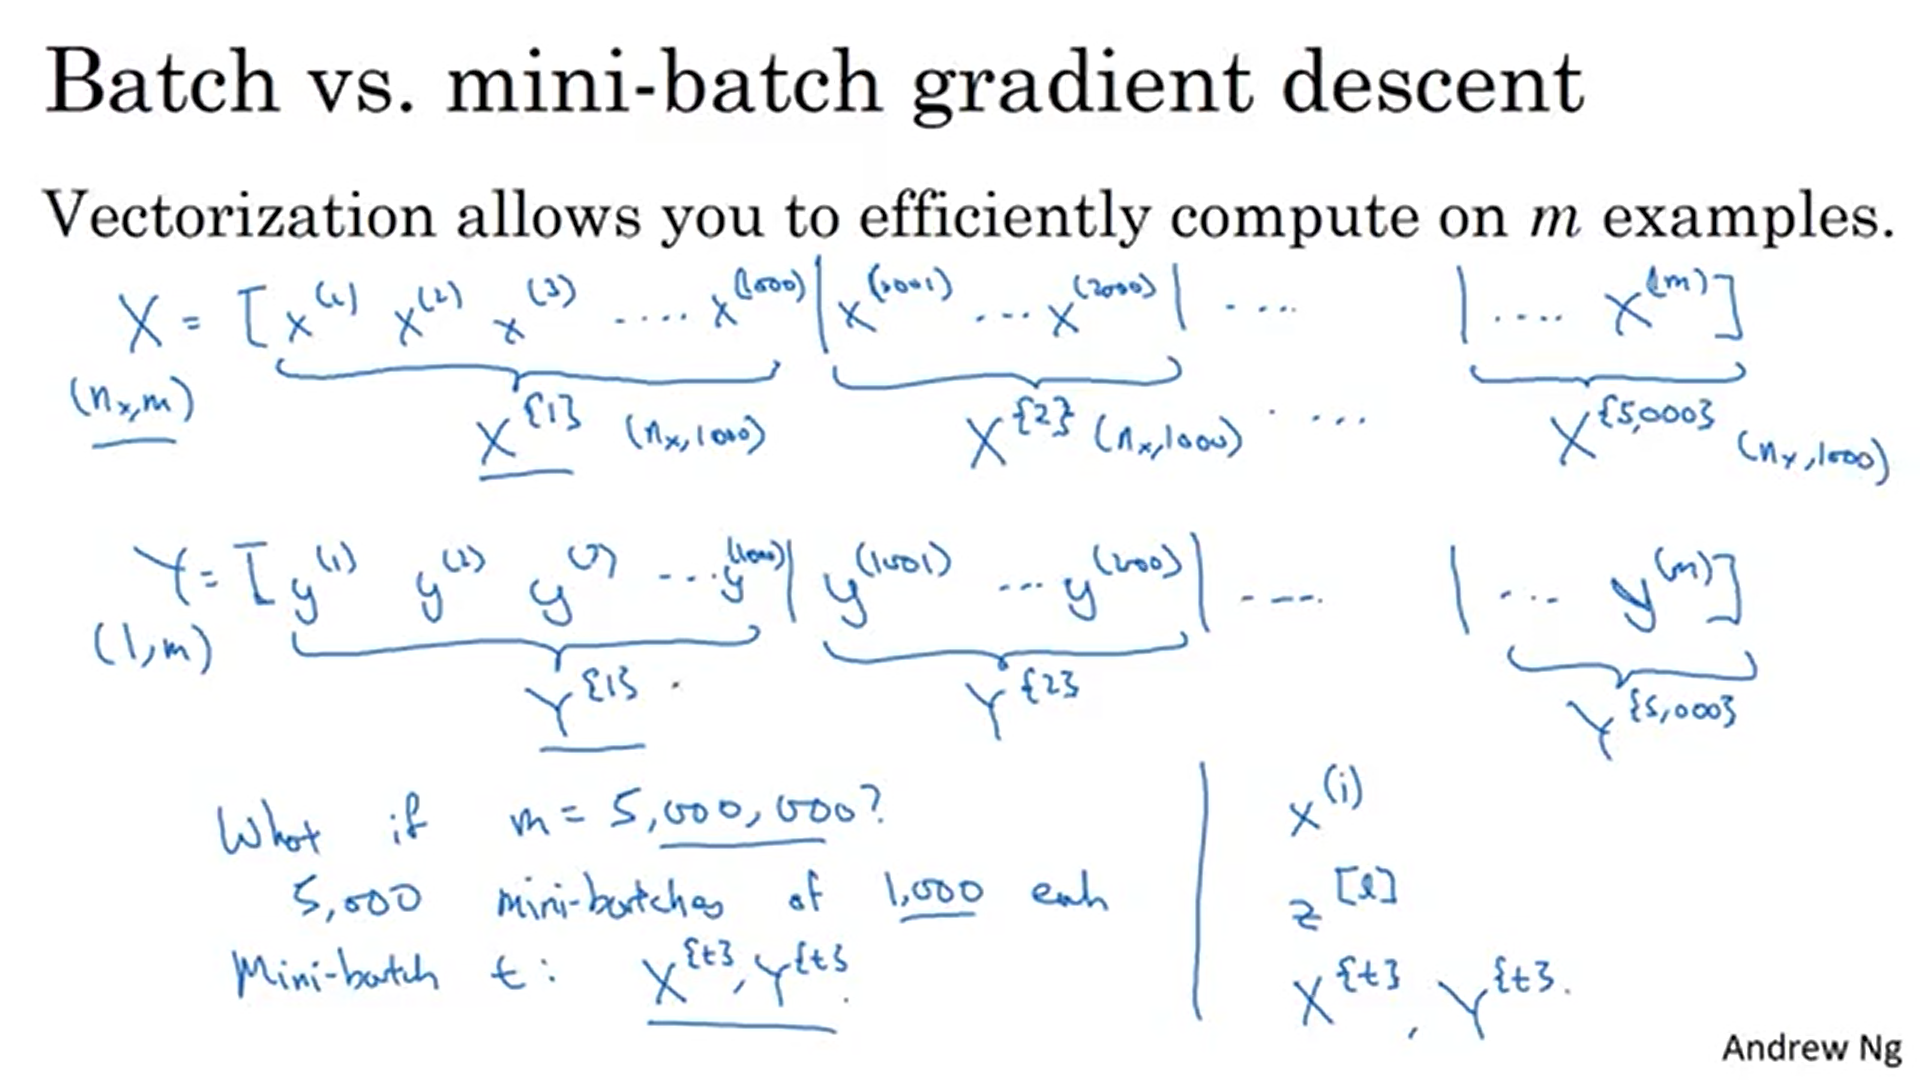 Batch vs. mini-batch gradient descent
Vectorization allows you to efficiently compute on m examples.
X = [x^(1) x^(2) x^(3) .... x^(1000) | x^(1001) ... x^(2000) | .... | .... x^(m)]
(n_x,m) X^{1} (n_x,1000) X^{2} (n_x,1000) .... X^{5,000} (n_x,1000)
Y = [y^(1) y^(2) y^(3) ... y^(1000) | y^(1001) ... y^(2000) | .... | ... y^(m)]
(1,m) Y^{1} Y^{2} Y^{5,000}
What if m = 5,000,000?
5,000 mini-batches of 1,000 each
Mini-batch t: X^{t}, Y^{t}.
x^(i)
z^[l]
X^{t}, Y^{t}.
Andrew Ng